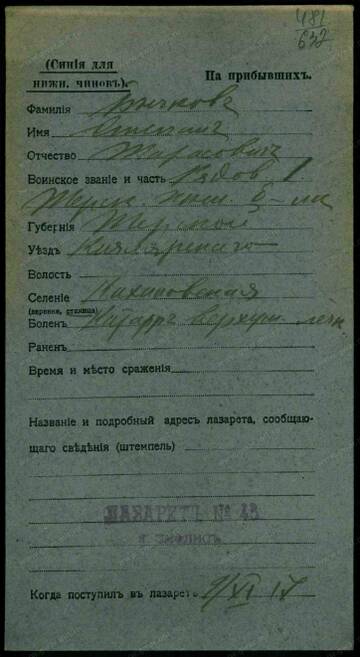 481
632
(Синія для
нижн. чиновъ). На прибывшихъ.
Фамилія Бычковъ
Имя Степанъ
Отчество Тарасовичъ
Воинское званіе и часть Рядов. 1
Губернія Терской
Уѣздъ Кизлярскаго
Волость
Селеніе
(деревня, станица)
Боленъ Катарръ верхуш. легк.
Раненъ
Время и мѣсто сраженія
Названіе и подробный адресъ лазарета, сообщаю-
щаго свѣдѣнія (штемпель)
ЛАЗАРЕТЪ № 43
Когда поступилъ въ лазаретъ 1/XI 17